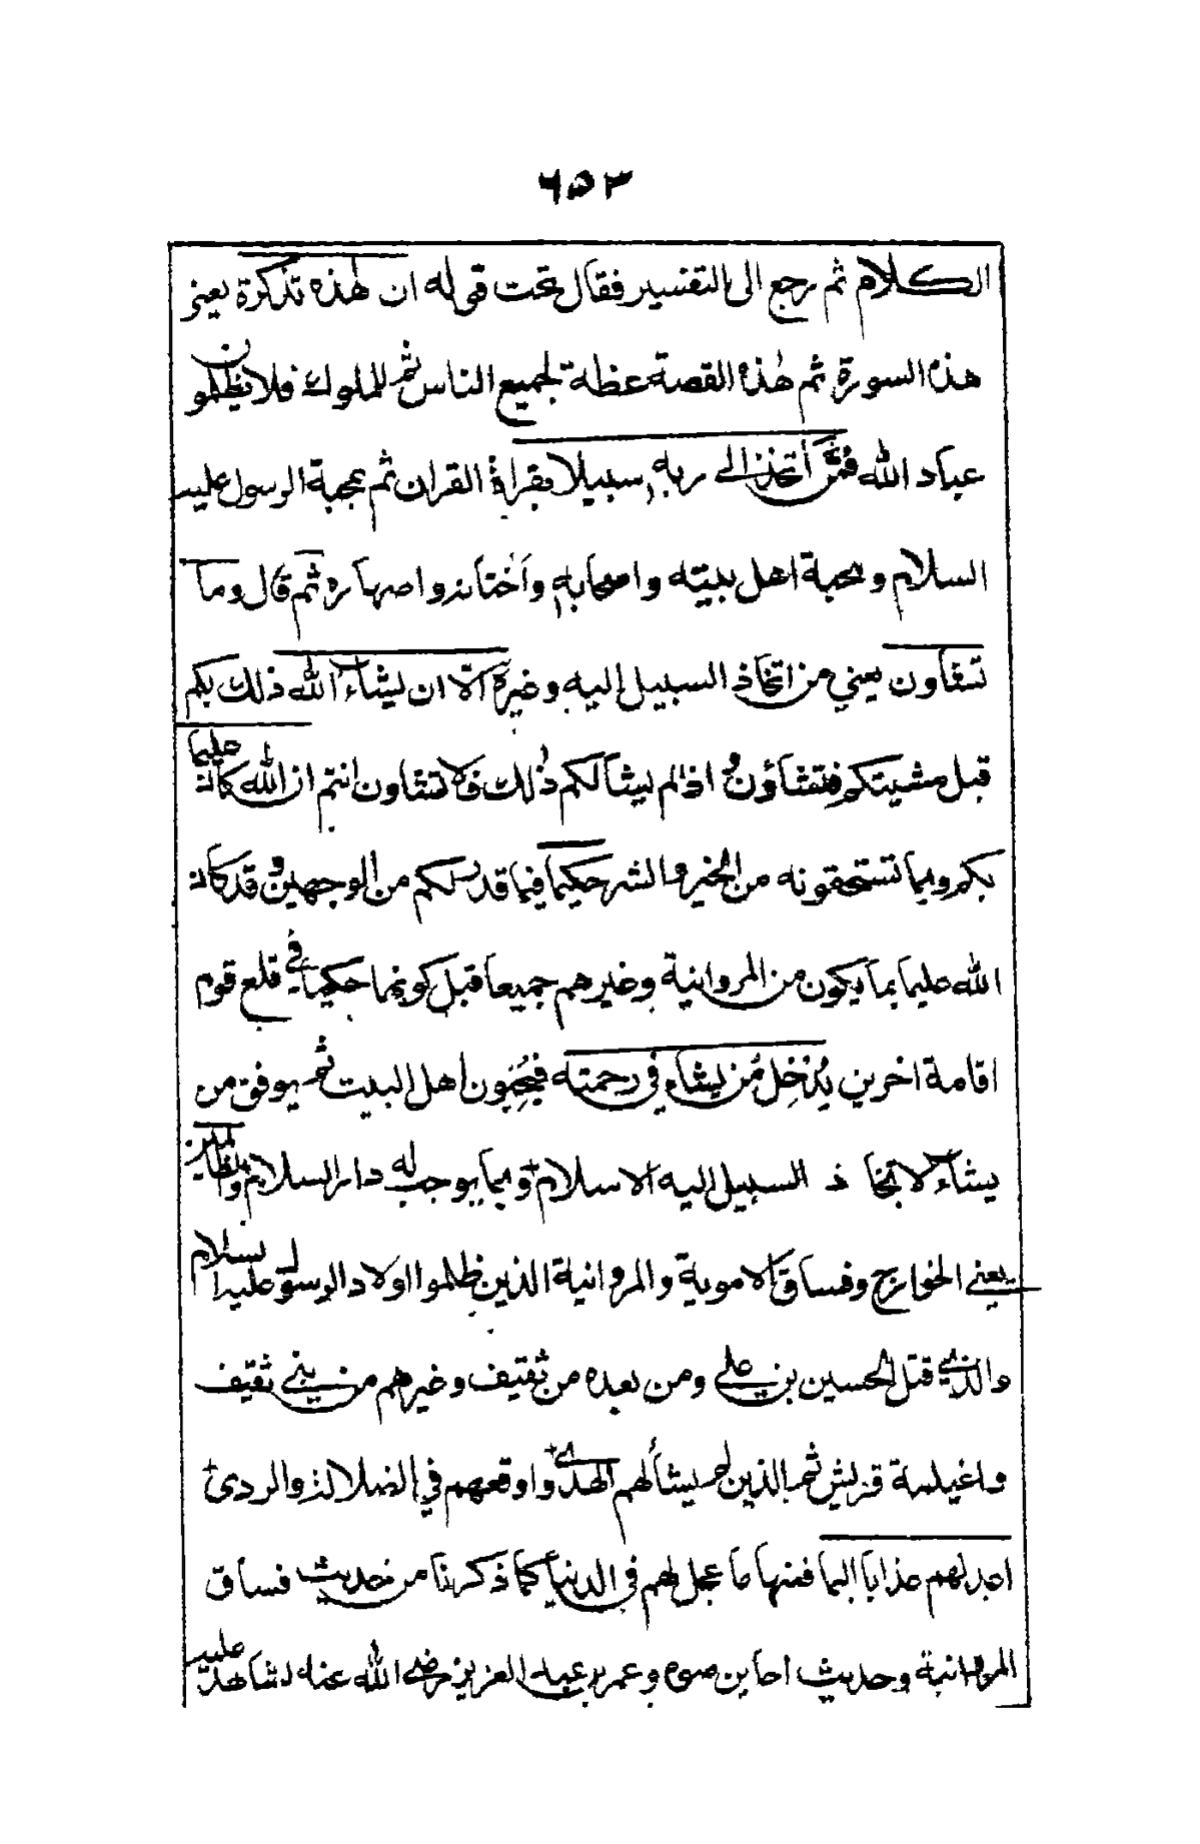 ٦٥٣
الكلام ثم رجع الى التفسير فقال تحت قوله ان هذه تذكرة يعني
هذه السورة ثم هذه القصة عظة لجميع الناس ثم للملوك فلا يظلمون
عباد الله فمن اتخذ الى ربه سبيلا بقراة القران ثم محبة الرسول عليه
السلام ومحبة اهل بيته واصحابه واختانه واصهاره ثم قال وما
تشاون يعني من اتخاذ السبيل اليه وغيره الا ان يشاء الله ذلك بكم
قبل مشيتكم فتشاؤن و اذا لم يشا لكم ذلك فلا تشاون انتم ان الله كان عليما
بكم وبما تستحقونه من الخير والشر حكيما فيما قدر لكم من الوجهين وقد كان
الله عليما بما يكون من المروانية وغيرهم جميعا قبل كونهما حكيما في قلع قوم
اقامة اخرين يدخل من يشاء في رحمته فيحبون اهل البيت ثم يوفق من
يشاء لاتخاذ السبيل اليه الاسلام وبما يوجب له دار السلام والظالمين
يعني الخوارج وفساق الاموية والمروانية الذين ظلموا اولاد الرسول عليه السلام
والذي قتل الحسين بن علي ومن بعده من ثقيف وغيرهم من بني ثقيف
واغيلمة قريش ثم الذين لم يشا لهم الهدى واوقعهم في الضلالة والردى
اعد لهم عذابا اليما فمنها ما عجل لهم في الدنيا كما ذكرنا من حديث فساق
المروانية وحديث وعمر بن عبد العزيز رضي الله عنه لشاهد عليه